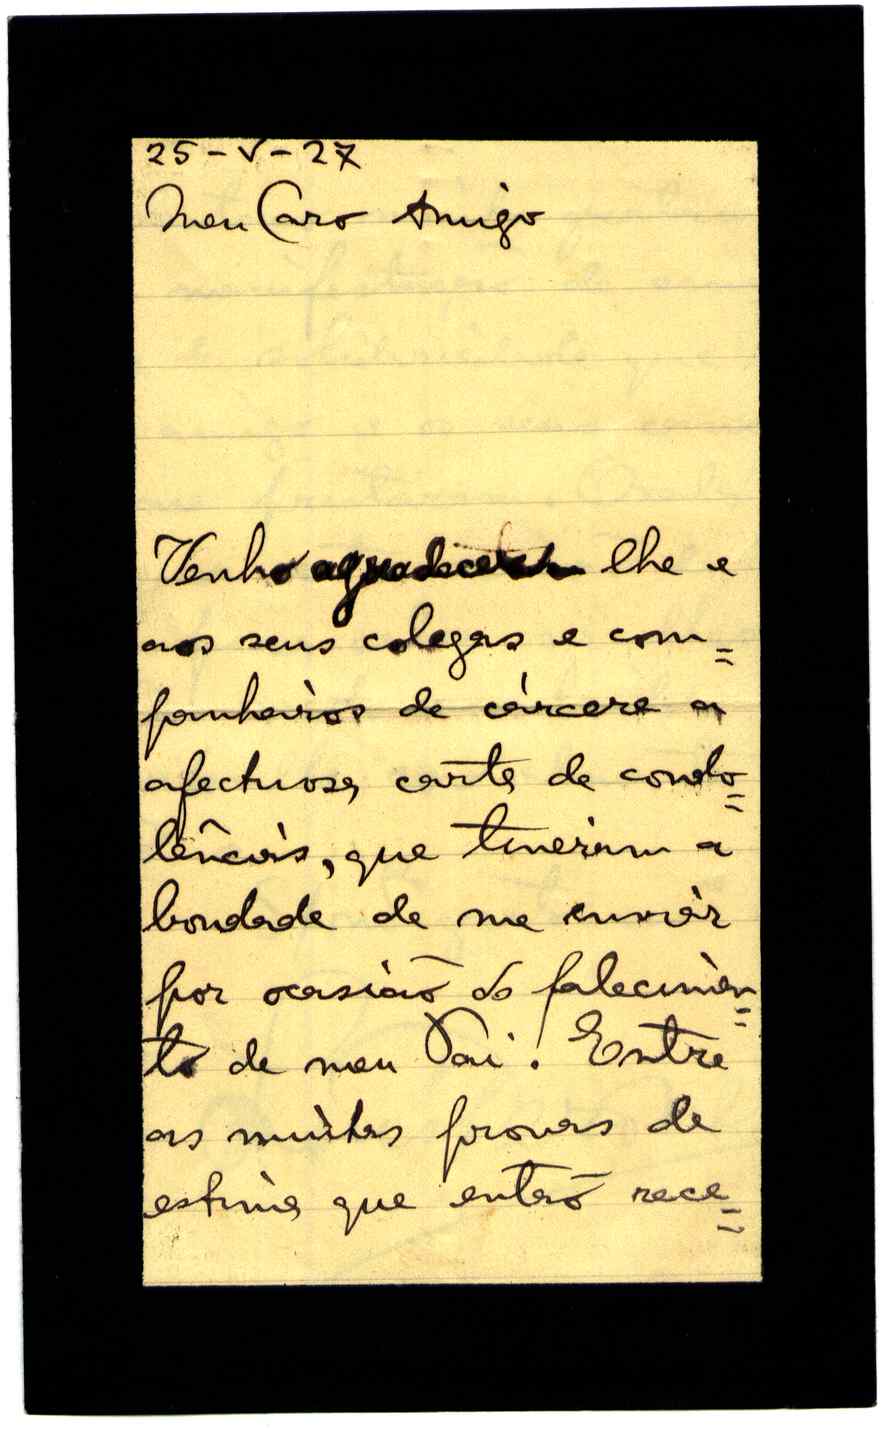 25-V-27
Meu Caro Amigo
Venho agradecer lhe e
aos seus colegas e com=
panheiros de cárcere a
afectuosa carta de condo=
lências, que tiveram a
bondade de me enviar
por ocasião do falecimen=
to de meu Pai. Entre
as muitas provas de
estima que então rece=